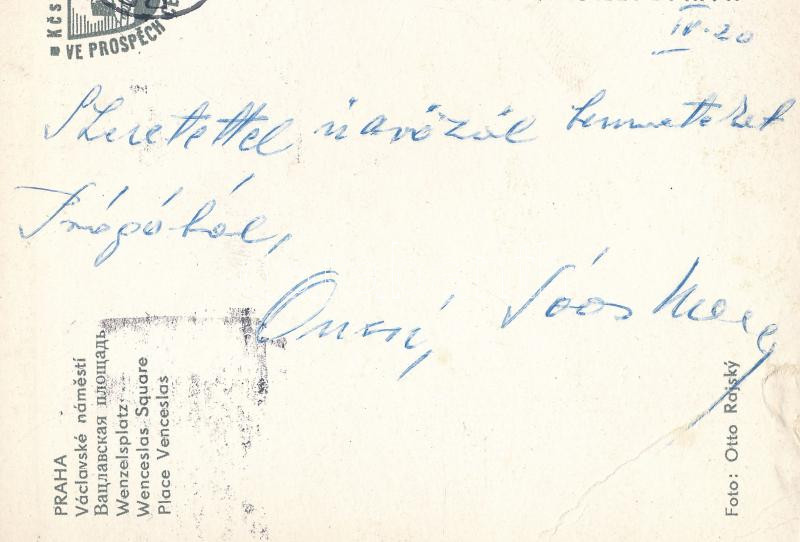 Kčs
VE PROSPĚCH
IV. 20
Szeretettel üdvözöl benneteket
Prágából,
Soós
PRAHA
Václavské náměstí
Вацлавская площадь
Wenzelsplatz
Wenceslas Square
Place Venceslas
Foto: Otto Rajský